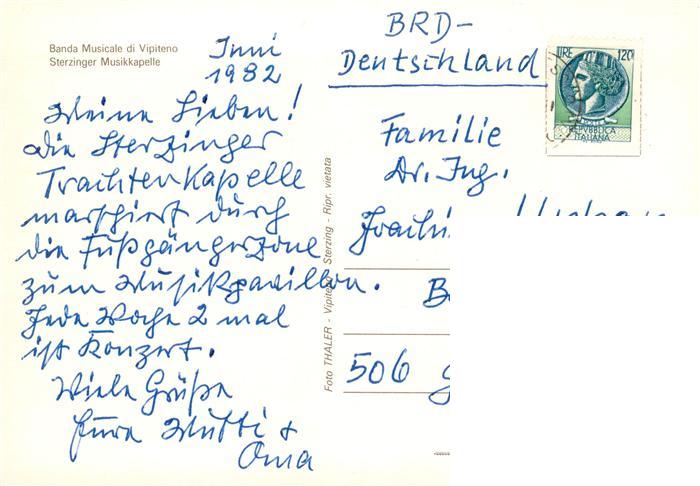 Banda Musicale di Vipiteno
Sterzinger Musikkapelle
Juni
1982
Meine Lieben!
die Sterzinger
Trachtenkapelle
marschiert durch
die Fußgängerzone
zum Musikpavillon.
Jede Woche 2 mal
ist Konzert.
Viele Grüße
Eure Mutti &
Oma
Foto THALER - Vipiteno Sterzing - Ripr. vietata
BRD-
Deutschland
LIRE 120
REPVBBLICA
ITALIANA
Familie
Dr. Ing.
506